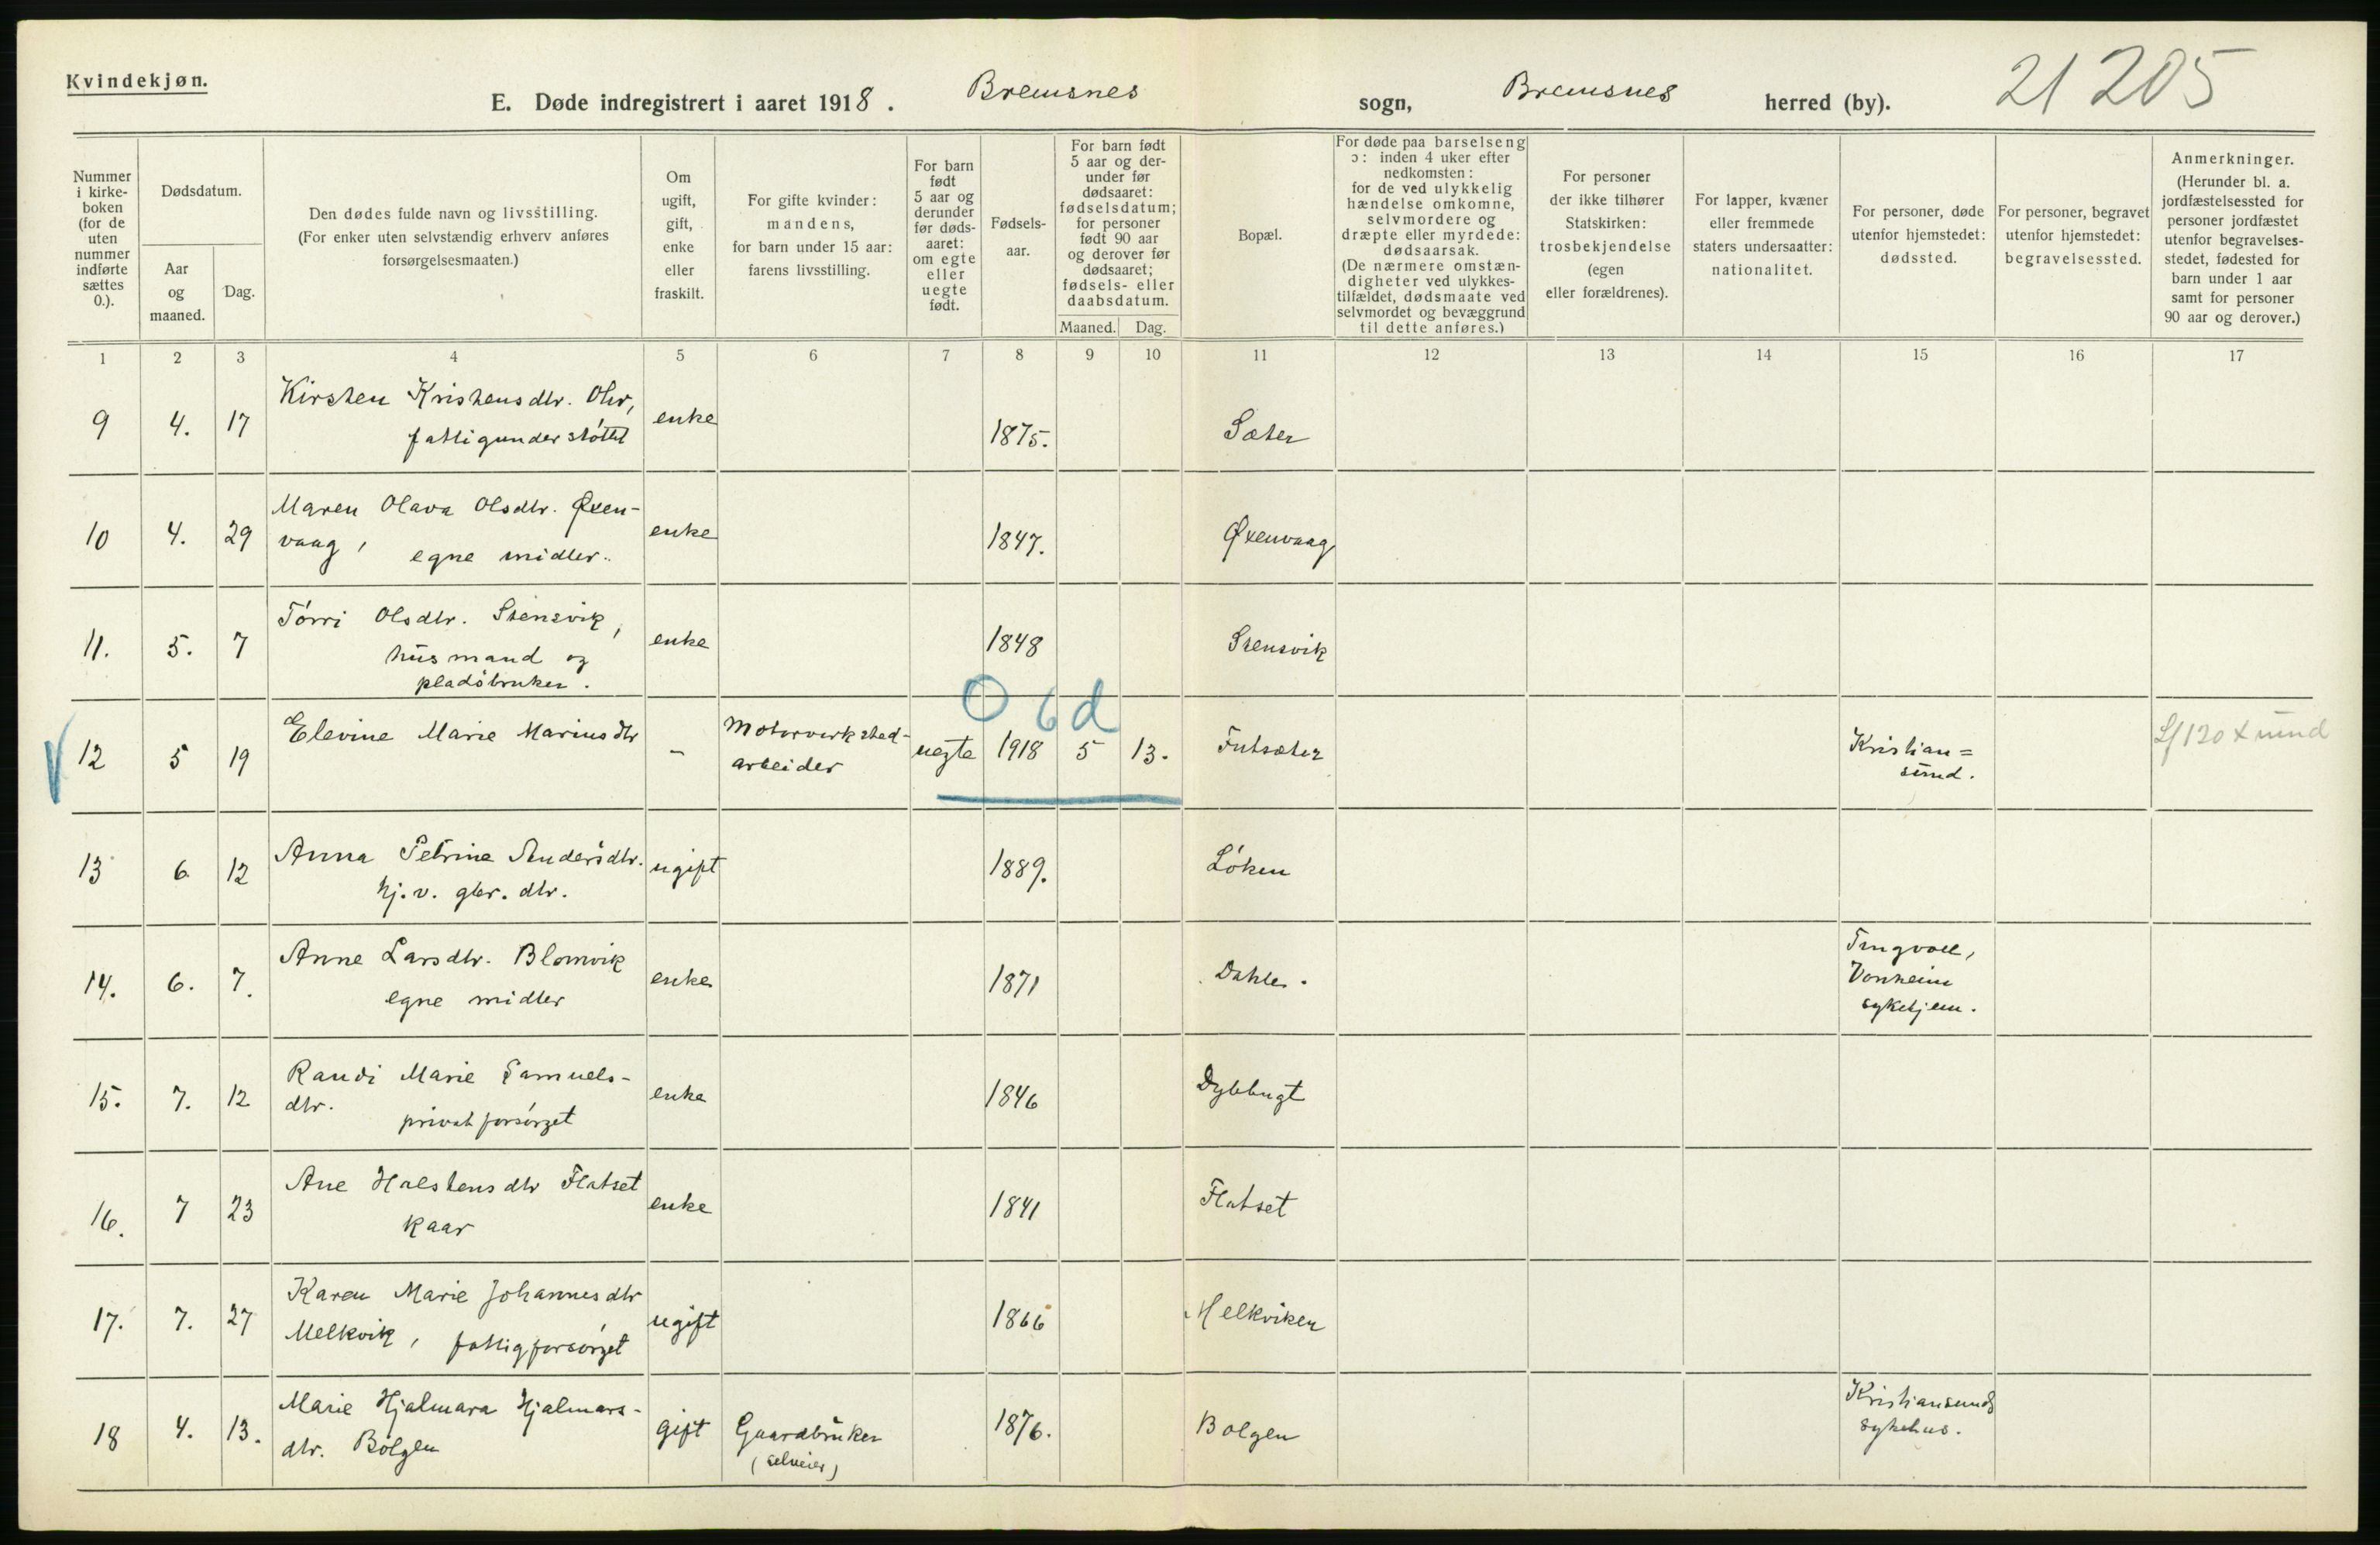 Kvindekjøn.
E. Døde indregistrert i aaret 1918. Bremsnes sogn, Bremsnes herred (by). 21 205
Nummer i kirke- boken (for de uten nummer indførte sættes 0.).
Dødsdatum.
Aar og maaned.
Dag.
Den dødes fulde navn og livsstilling.
(For enker uten selvstændig erhverv anføres
forsørgelsesmaaten.)
Om ugift, gift, enke eller fraskilt.
For gifte kvinder: mandens, for barn under 15 aar: farens livsstilling.
For barn født 5 aar og derunder før døds- aaret: om egte eller uegte født.
Fødsels- aar.
For barn født 5 aar og der- under før dødsaaret: fødselsdatum; for personer født 90 aar og derover før dødsaaret; fødsels- eller daabsdatum.
Maaned. Dag.
Bopæl.
For døde paa barselseng ɔ: inden 4 uker efter nedkomsten: for de ved ulykkelig hændelse omkomne, selvmordere og dræpte eller myrdede: dødsaarsak. (De nærmere omstæn- digheter ved ulykkes- tilfældet, dødsmaate ved selvmordet og bevæggrund til dette anføres.)
For personer der ikke tilhører Statskirken: trosbekjendelse (egen eller forældrenes).
For lapper, kvæner eller fremmede staters undersaatter: nationalitet.
For personer, døde utenfor hjemstedet: dødssted.
For personer, begravet utenfor hjemstedet: begravelsessted.
Anmerkninger. (Herunder bl. a. jordfæstelsessted for personer jordfæstet utenfor begravelses- stedet, fødested for barn under 1 aar samt for personer 90 aar og derover.)
1 2 3 4 5 6 7 8 9 10 11 12 13 14 15 16 17
9 4. 17 Kirsten Kristensdtr. Ohr, enke 1875. Sæter
fattigunderstøttet
10 4. 29 Maren Olava Olsdtr. Øxen- enke 1847. Øxenvaag
vaag, egne midler.
11. 5. 7 Tórri Olsdtr. Stensvik, enke 1848 Stensvik
husmand og
pladsbruker.
O 6 d
12 5 19 Elevine Marie Mariusdtr - Motorverksted- uegte 1918 5 13. Futsæter Kristian=
arbeider sund.
13 6 12 Anna Petrine Andersdtr. ugift 1889. Lóken
hj. v. gbr. dtr.
14. 6. 7. Anne Larsdtr. Blomvik enke 1871 Dahle. Tingvoll,
egne midler Vonheim
sykehjem.
15. 7. 12 Randi Marie Samuels- enke 1846 Dybbugt
dtr. privat forsórget
16. 7 23 Ane Halstensdtr Flatset enke 1841 Flatset
kaar
17. 7. 27 Karen Marie Johannesdtr ugift 1866 Melkviken
Melkvik, fattigforsórget
18 4. 13. Marie Hjalmara Hjalmars- gift Gaardbruker 1876. Bolgen Kristiansunds
dtr. Bolgen (selveier) sykehus.